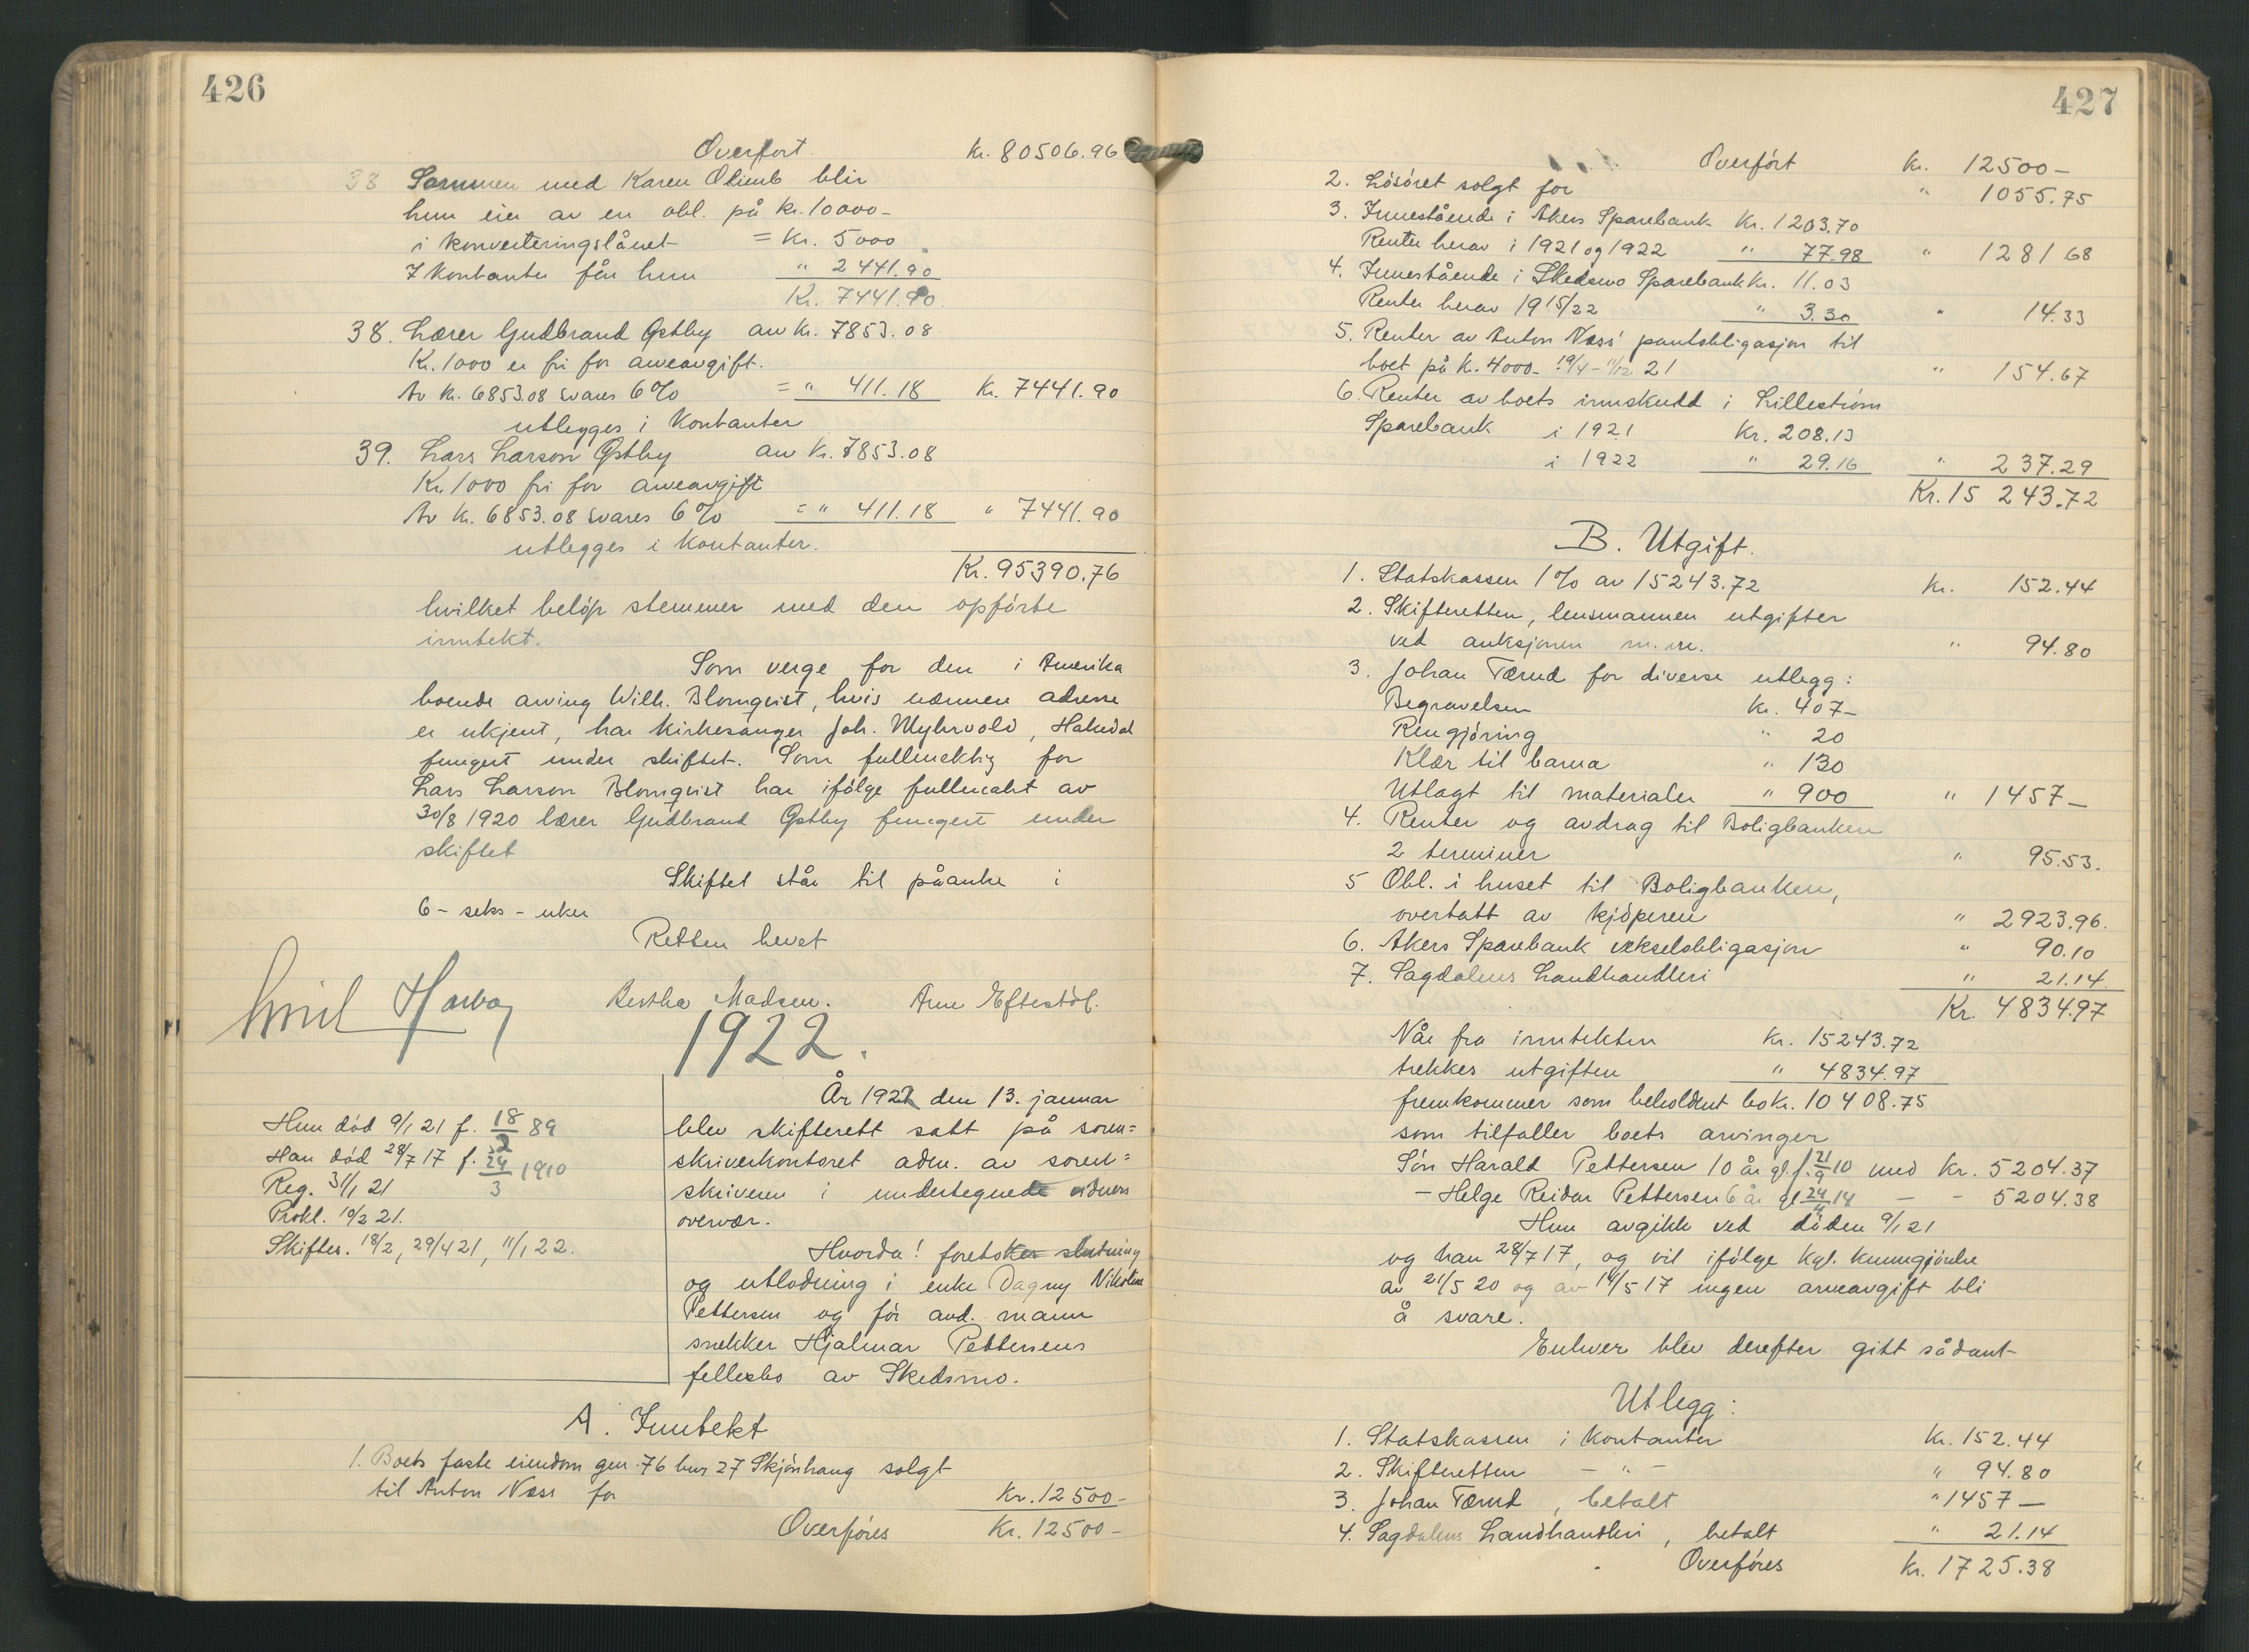 426
Overført Kr. 80506.96
38 Sammen med Karen Olimb blir
hun eier av en obl. på kr. 10000-
i konverteringslånet = Kr. 5000
I kontanter får hun " 2441.90
Kr. 7441.90
38. Lærer Gudbrand Østby arv Kr. 7853.08
Kr. 1000 er fri for arveavgift.
Av kr. 6853.08 svares 6% = " 411.18 Kr. 7441.90
utlegges i kontanter
39. Lars Larson Østby arv Kr. 7853.08
Kr. 1000 fri for arveavgift
Av kr. 6853.08 svares 6% = " 411.18 " 7441.90
utlegges i kontanter.
Kr. 95390.76
hvilket beløp stemmer med den opførte
inntekt.
Som verge for den i Amerika
boende arving Wilh. Blomqvist, hvis nærmere adresse
er ukjent, har kirkesanger Joh. Myhrvold, Hakedal
fungert under skiftet. Som fullmektig for
Lars Larson Blomqvist har ifølge fullmakt av
30/8 1920 lærer Gudbrand Østby fungert under
skiftet
Skiftet står til påanke i
6 - seks - uker
Retten hevet
Emil Bertha Madsen. Arne Eftestøl.
1922.
År 1922 den 13. januar
blev skifterett satt på soren=
skriverkontoret adm. av soren=
skriveren i undertegnede vidners
overvær.
Hvorda! foretokes slutning
og utlodning i enke Dagny Nikoline
Pettersen og før avd. mann
snekker Hjalmar Pettersens
fellesbo av Skedsmo.
Hun død 9/1 21 f. 18/2 89
Han død 28/7 17 f. 24/3 1910
Reg. 31/1 21
Prokl. 10/2 21.
Skiftes. 18/2, 29/4 21, 11/1 22.
A. Inntekt
1. Boets faste eiendom gnr. 76 bnr 27 Skjønhaug solgt
til Anton Næss for Kr. 12500-
Overføres Kr. 12500-
427
Overført Kr. 12500-
2. Løsøret solgt for " 1055.75
3. Innestående i Akers Sparebank Kr. 1203.70
Renter herav i 1921 og 1922 " 77.98 " 1281 68
4. Innestående i Skedsmo Sparebank Kr. 11.03
Renter herav 1915/22 " 3.30 " 14.33
5. Renter av Anton Næss' pantobligasjon til
boet på Kr. 4000- 19/4 - 11/12 21 " 154.67
6. Renter av boets innskudd i Lillestrøm
Sparebank i 1921 Kr. 208.13
i 1922 " 29.16 " 237.29
Kr. 15 243.72
B. Utgift.
1. Statskassen 1% av 15243.72 Kr. 152.44
2. Skifteretten, lensmannen utgifter
ved auksjonen m. m. " 94.80
3. Johan Tærud for diverse utlegg:
Begravelsen Kr. 407-
Rengjøring " 20
Klær til barna " 130
Utlagt til materialer " 900 " 1457-
4. Renter og avdrag til Boligbanken
2 terminer " 95.53.
5 Obl. i huset til Boligbanken,
overtatt av kjøperen " 2923.96.
6. Akers Sparebank vekselobligasjon " 90.10
7. Sagdalens Landhandleri " 21.14.
Kr. 4834.97
Når fra inntekten Kr. 15243.72
trekkes utgiften " 4834.97
fremkommer som beholdent bo Kr. 10408.75
som tilfaller boets arvinger
Søn Harald Pettersen 10 år gl. f. 21/9 10 med Kr. 5204.37
- Helge Reidar Pettersen 6 år gl 24/4 14 - - 5204.38
Hun avgikk ved døden 9/1 21
og han 28/7 17, og vil ifølge Kgl. kunngjørelse
av 21/5 20 og av 14/5 17 ingen arveavgift bli
å svare.
Enhver blev derefter gitt sådant
Utlegg:
1. Statskassen i kontanter Kr. 152.44
2. Skifteretten - " - " 94.80
3. Johan Tærud, betalt " 1457-
4. Sagdalens Landhandleri, betalt " 21.14
Overføres Kr. 1725.38